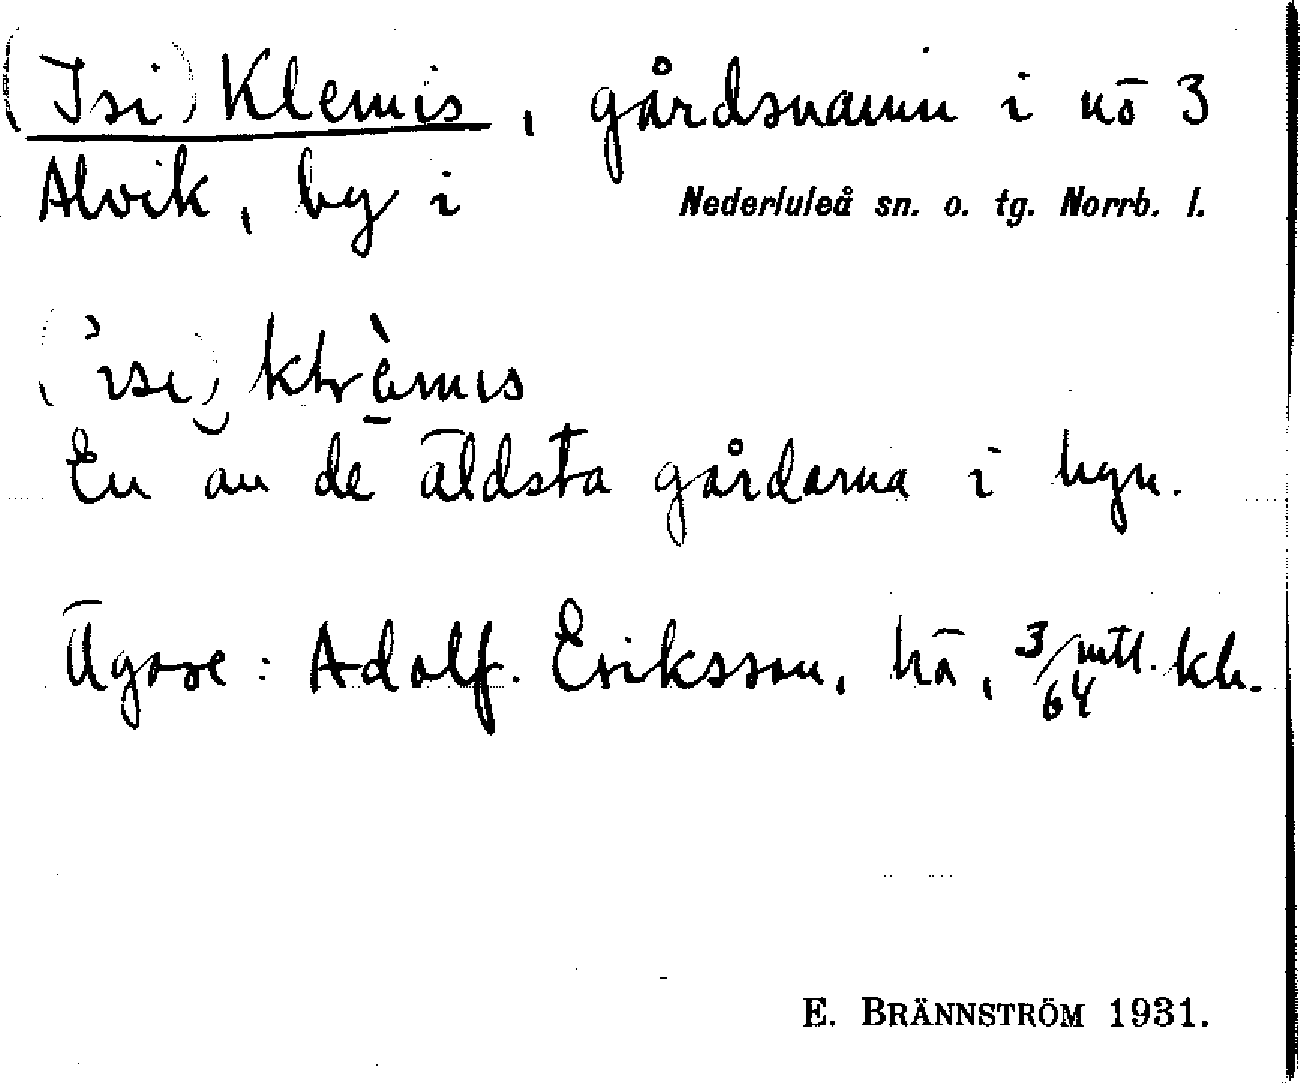 (Isi) Klemis, gårdsnamn i nö 3
Alvik, by i Nederluleå sn. o. tg. Norrb. l.
En av de äldsta gårdarna i byn.
Ägare: Adolf Eriksson, hä, 3/64 mtl. kr.
E. BRÄNNSTRÖM 1931.